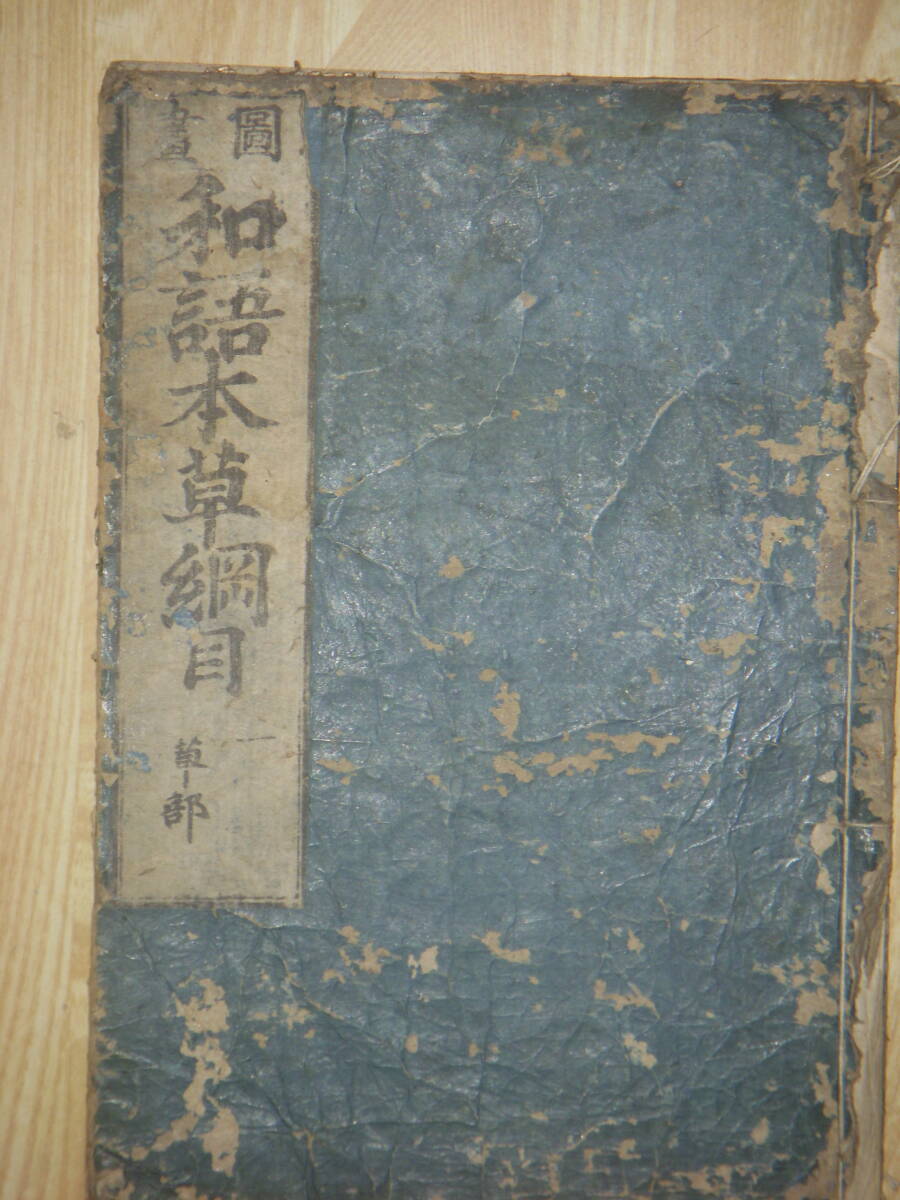 圖畫
和語本草綱目
一
草部